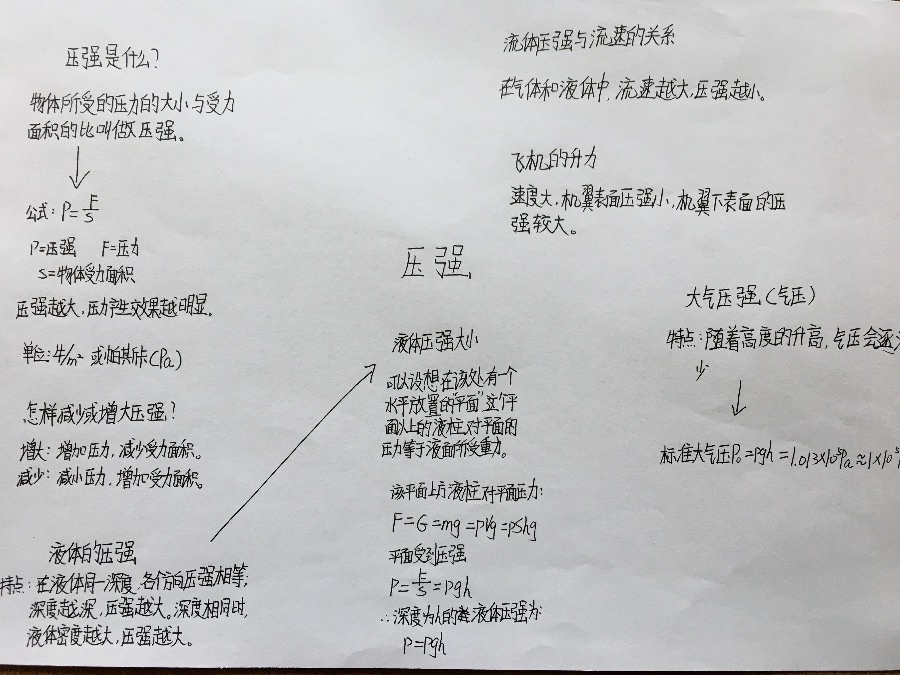 压强是什么?
物体所受的压力的大小与受力
面积的比叫做压强。
公式: P=F/S
P=压强 F=压力
S=物体受力面积
压强越大,压力产生效果越明显。
单位:牛/m² 或帕斯卡(Pa)
怎样减少或增大压强?
增大: 增加压力,减少受力面积。
减少: 减小压力,增加受力面积。
液体的压强
特点: 在液体同一深度,各个方向压强相等;
深度越深,压强越大。深度相同时,
液体密度越大,压强越大。
压强
液体压强大小
可以设想在该处有一个
水平放置的“平面”这个平
面以上的液柱对平面的
压力等于液面所受重力。
该平面上方液柱对平面压力:
F=G=mg=ρVg=ρShg
平面受到压强
P=F/S=ρgh
∴深度为h的离液体压强为:
P=ρgh
流体压强与流速的关系
在气体和液体中,流速越大,压强越小。
飞机的升力
速度大,机翼表面压强小,机翼下表面的压
强较大。
大气压强(气压)
特点:随着高度的升高,气压会逐
少
标准大气压P₀=ρgh=1.013×10⁵Pa≈1×10⁵